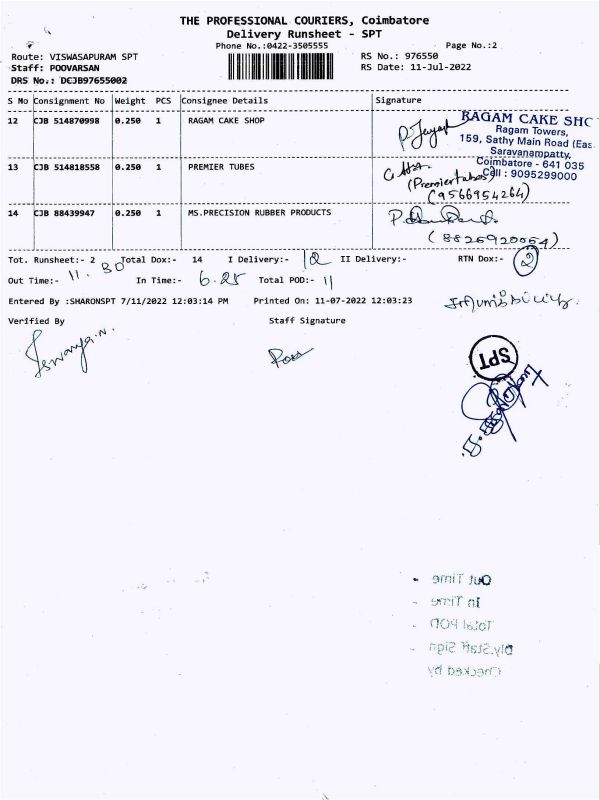 THE PROFESSIONAL COURIERS, Coimbatore
Delivery Runsheet - SPT
Phone No.:0422-3505555
Page No.:2
Route: VISWASAPURAM SPT
RS No.: 976550
Staff: POOVARSAN
RS Date: 11-Jul-2022
DRS No.: DCJB97655002
S No Consignment No Weight PCS Consignee Details Signature
12 CJB 514870998 0.250 1 RAGAM CAKE SHOP
RAGAM CAKE SHO
Ragam Towers,
159, Sathy Main Road (Eas
Saravanampatty,
Coimbatore - 641 035
Cell : 9095299000
13 CJB 514818558 0.250 1 PREMIER TUBES
(Premier tubes)
(9566954264)
14 CJB 88439947 0.250 1 MS.PRECISION RUBBER PRODUCTS
Tot. Runsheet:- 2 Total Dox:- 14 I Delivery:- 12 II Delivery:- RTN Dox:- 2
Out Time:- 11.30 In Time:- 6.25 Total POD:- 11
Entered By :SHARONSPT 7/11/2022 12:03:14 PM Printed On: 11-07-2022 12:03:23
Verified By Staff Signature
SPT
Out Time
In Time
Total POD
Dly.Staff Sign
Checked by